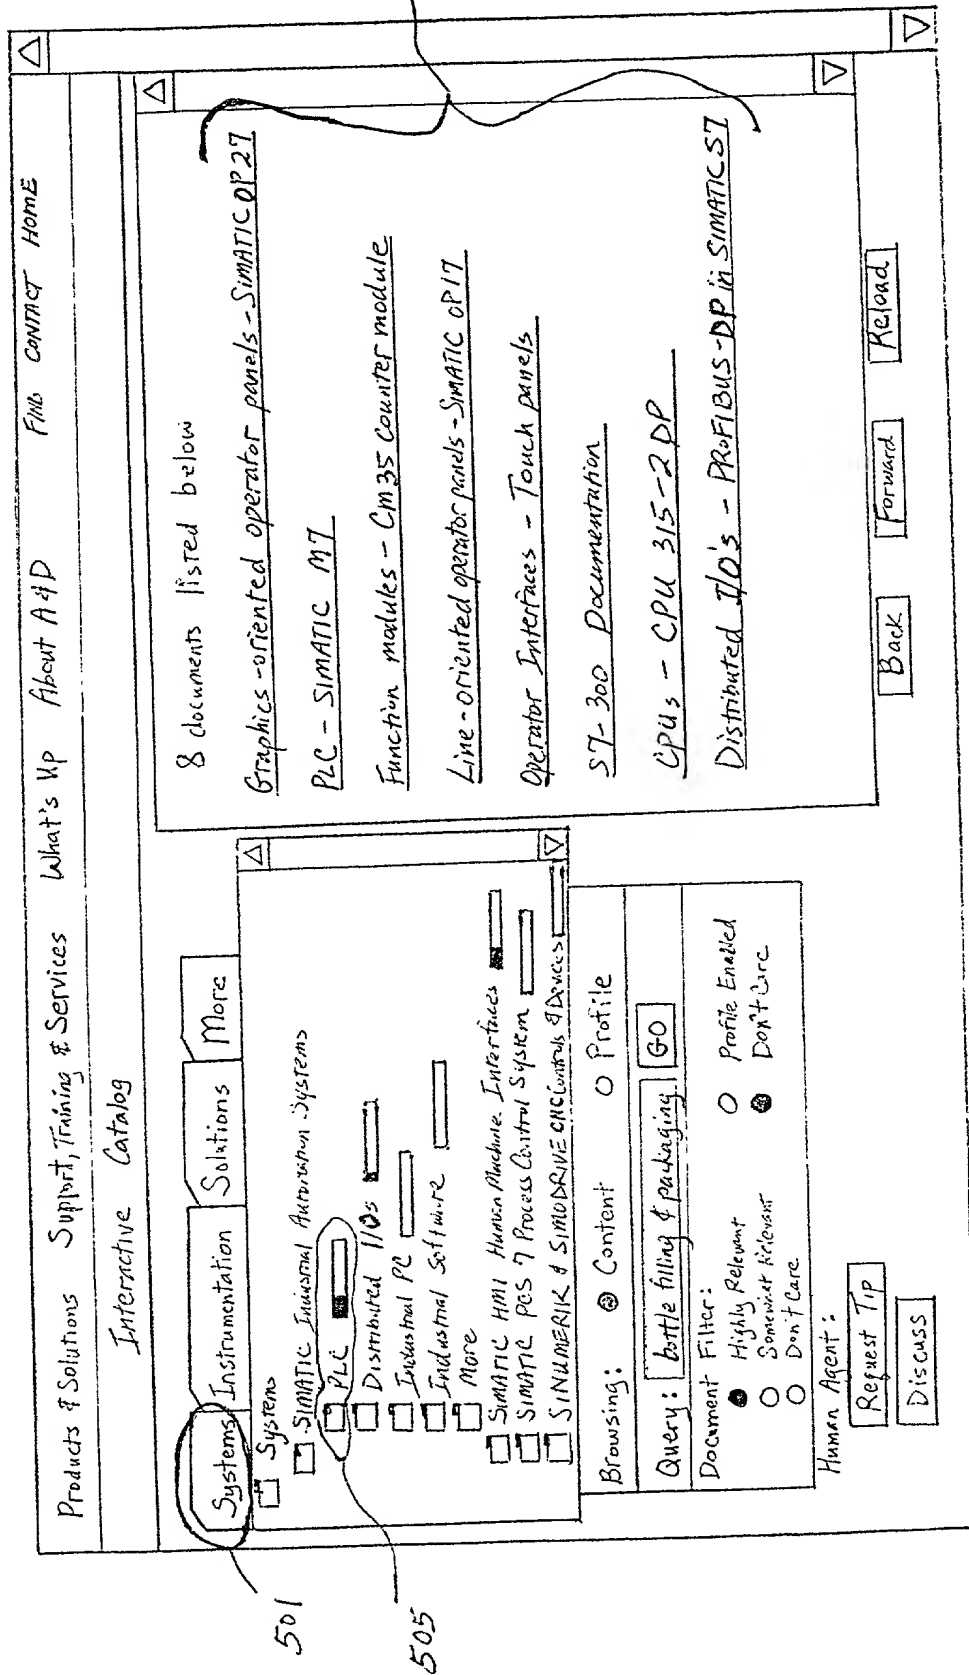 Products & Solutions Support, Training & Services What's Up About A&D FIND CONTACT HOME
Interactive Catalog
Systems Instrumentation Solutions More
Systems
SIMATIC Industrial Automation Systems
PLC
Distributed I/Os
Industrial PC
Industrial Software
More
SIMATIC HMI Human Machine Interfaces
SIMATIC PCS 7 Process Control System
SINUMERIK & SIMODRIVE CNC Controls & Devices
Browsing: Content Profile
Query: bottle filling & packaging GO
Document Filter:
Highly Relevant Profile Enabled
Somewhat Relevant Don't Care
Don't Care
Human Agent:
Request Tip
Discuss
8 documents listed below
Graphics-oriented operator panels - SIMATIC OP27
PLC - SIMATIC M7
Function modules - Cm35 Counter module
Line-oriented operator panels - SIMATIC OP17
Operator Interfaces - Touch panels
S7-300 Documentation
CPUs - CPU 315-2 DP
Distributed I/O's - PROFIBUS-DP in SIMATIC S7
Back Forward Reload
501
505